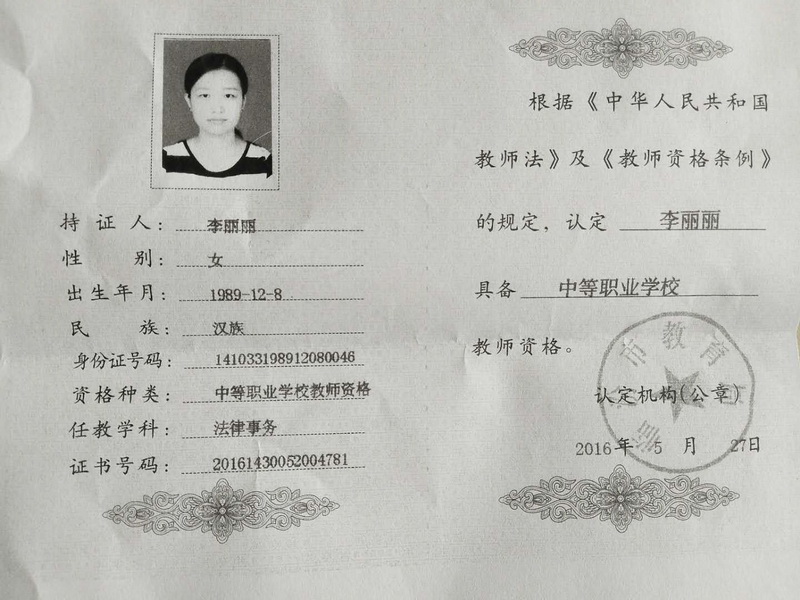 持证人：李丽丽
性别：女
出生年月：1989-12-8
民族：汉族
身份证号码：141033198912080046
资格种类：中等职业学校教师资格
任教学科：法律事务
证书号码：20161430052004781
根据《中华人民共和国
教师法》及《教师资格条例》
的规定，认定 李丽丽
具备 中等职业学校
教师资格。
市教育
认定机构(公章)
2016年 5 月 27日